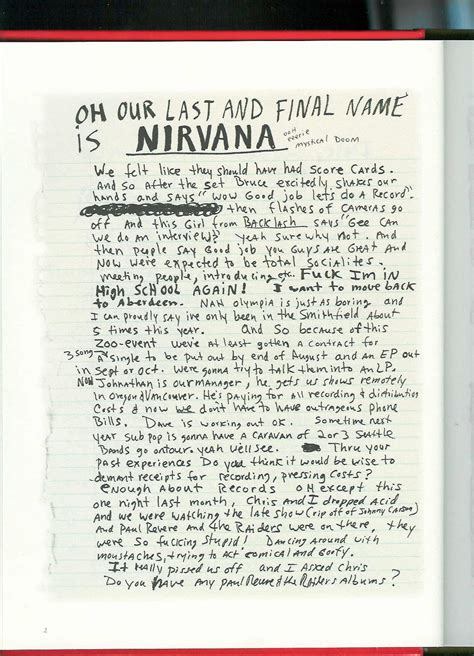 OH OUR LAST AND FINAL NAME
is NIRVANA ooh eerie mystical Doom
We felt like they should have had score cards.
And so after the set Bruce excitedly shakes our
hands and says "wow Good job lets do a Record".
then flashes of Cameras go
off And this Girl from BACKlash says "Gee CAN
we do AN interview?" Yeah sure why Not. And
then people say Good job you Guys are Great And
Now were expected to be total Socialites.
meeting people, introducing etc. Fuck Im in
High School AGAIN! I want to move back
to Aberdeen. NAH olympia is just as boring and
I can proudly say ive only been in the Smithfield About
5 times this year. And so because of this
Zoo-event weve at least gotten a contract for
3 song A single to be put out by end of August and an EP out
in sept or oct. Were gonna try to talk them into an LP.
Now Johnathan is our manager, he gets us shows remotely
in Oregon & Vancouver. He's paying for all recording & distribution
Costs & now we don't have to have outrageous phone
Bills. Dave is working out ok. Sometime next
year Sub pop is gonna have a CARAVAN of 2 or 3 Seattle
Bands go on tour. yeah well see. Thru your
past experiences Do you think it would be wise to
demand receipts for recording, pressing Costs?
enough About Records oH except this
one night last month, Chris and I dropped Acid
And we were watching the late show (rip off of Johnny Carson)
And Paul Revere And the RAiders were on there, they
were so fucking Stupid! Dancing around with
moustaches, trying to Act comical and Goofy.
It really pissed us off and I Asked Chris
Do you have Any Paul Revere & the Raiders Albums?
2